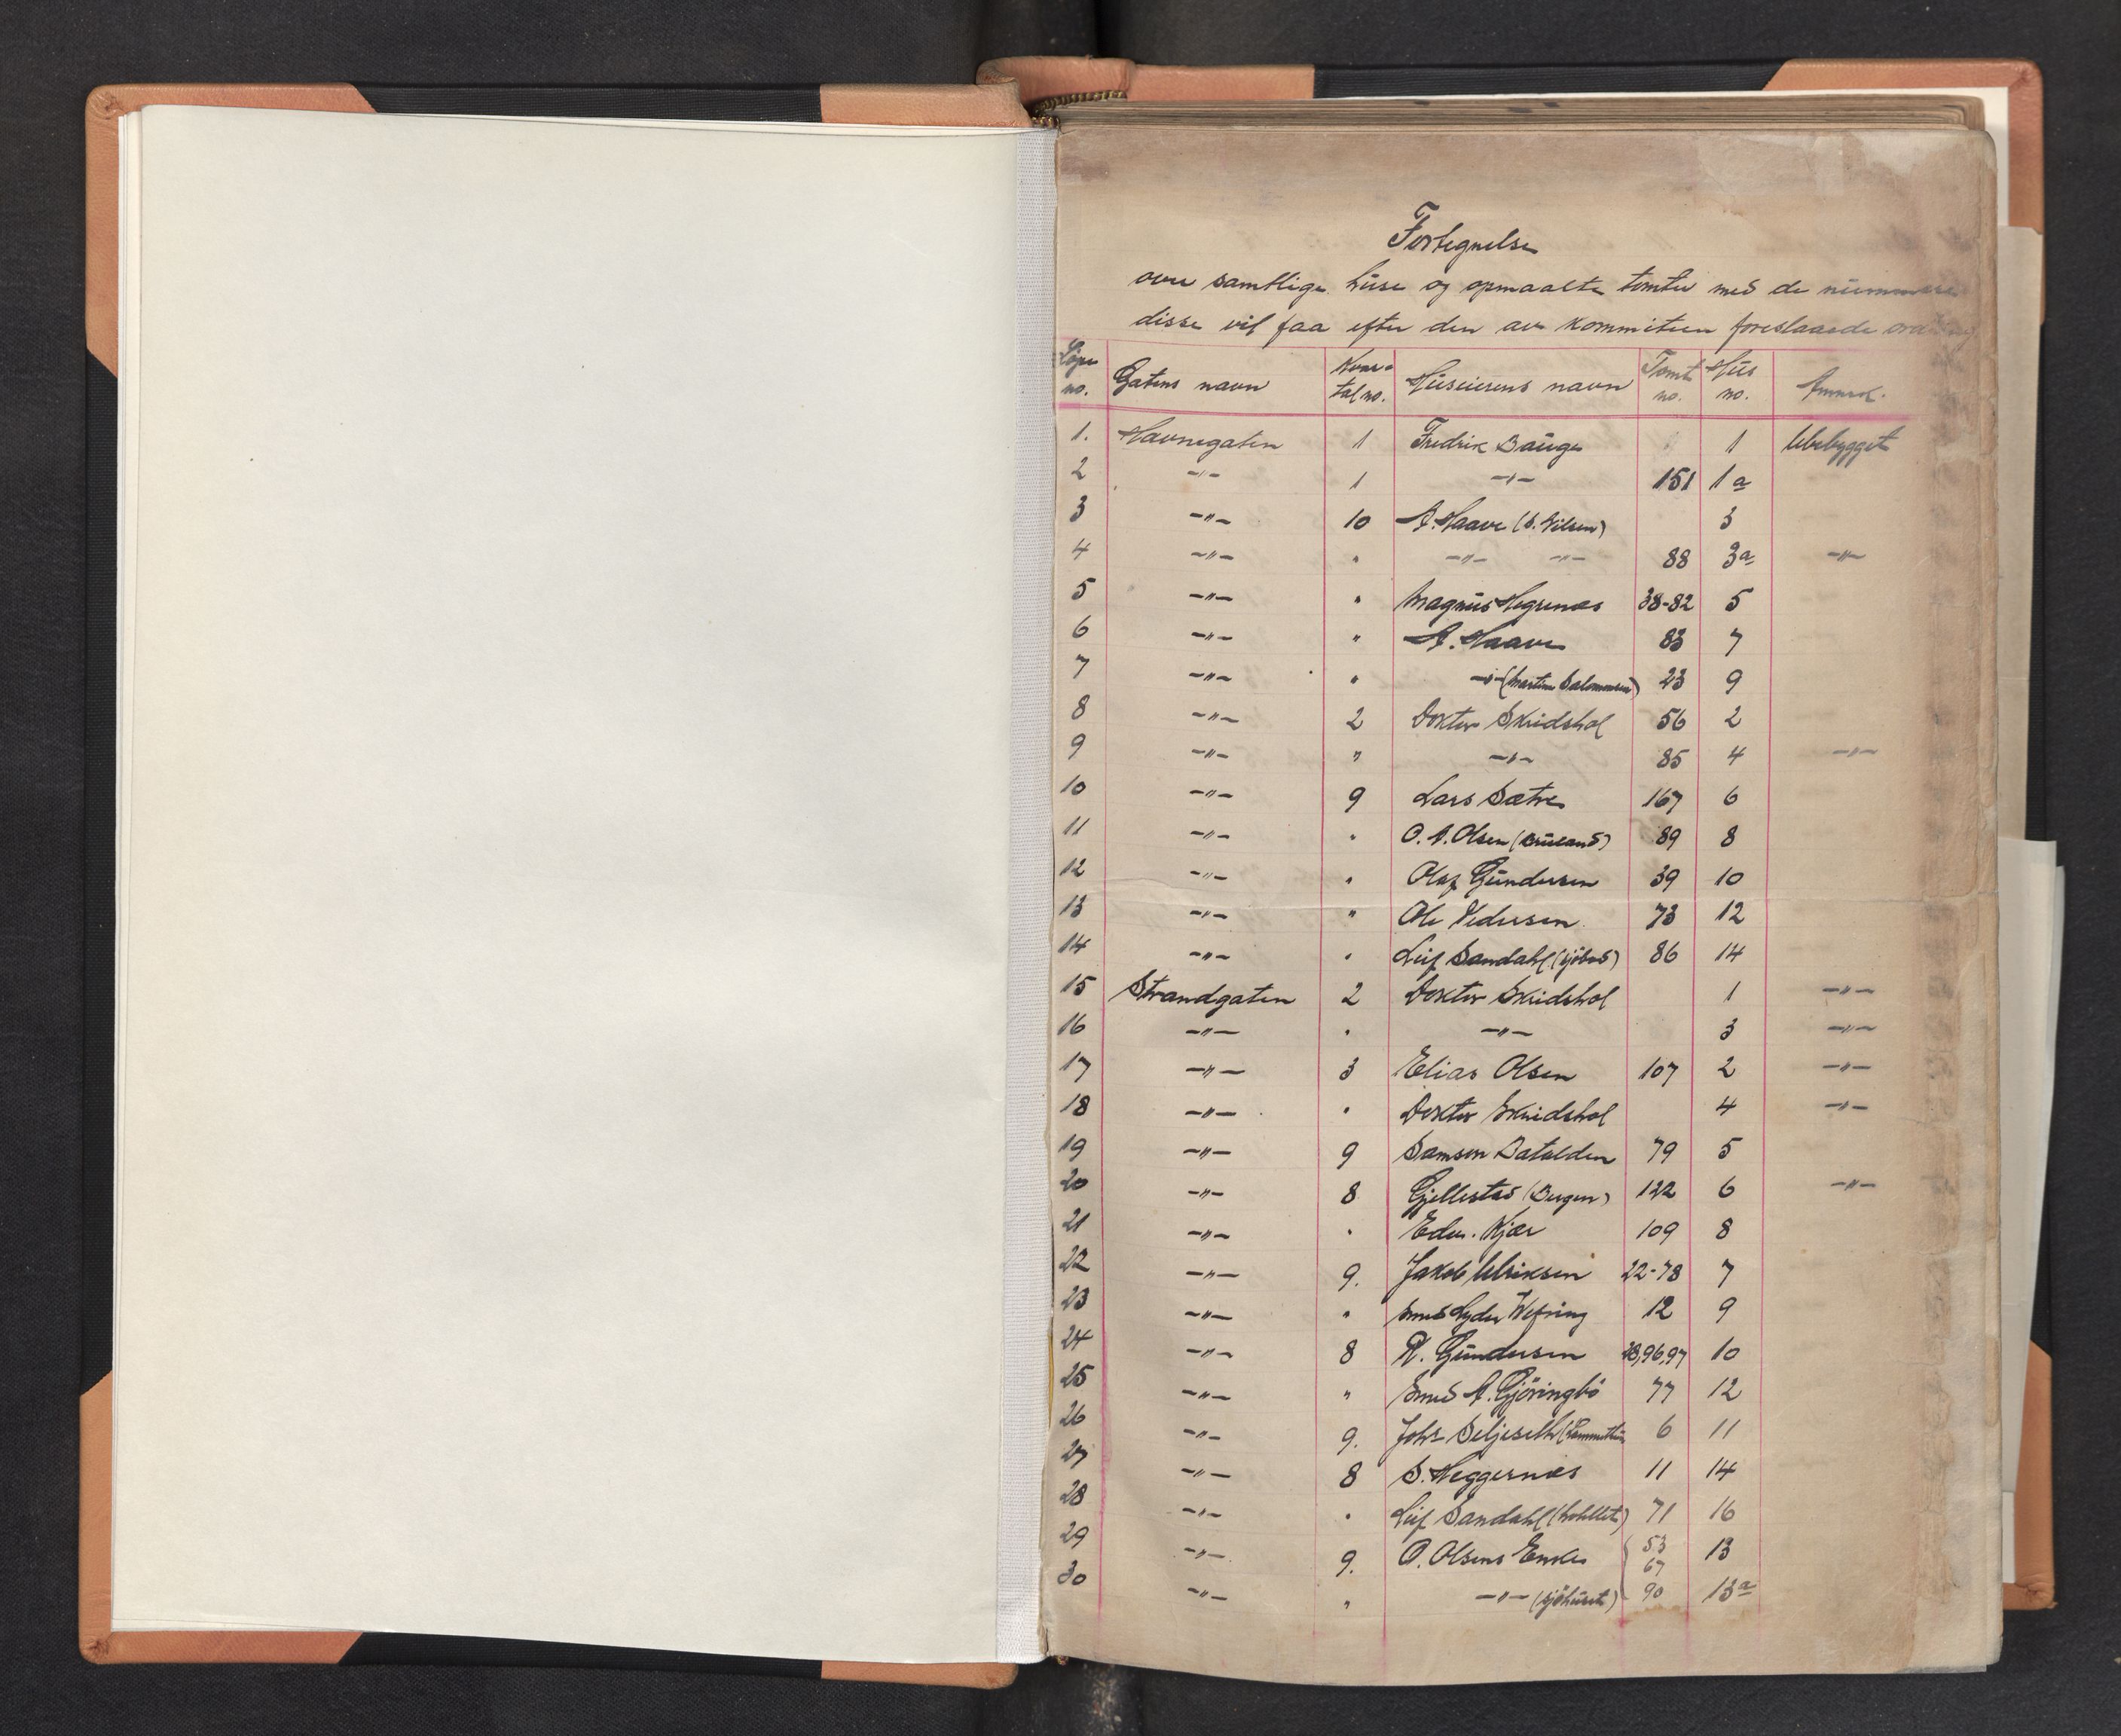 Fortegnelse
over samtlige huse og opmaalte tomter med de nummere
disse vil faa efter den av kommiteen foreslaaede ordning
Løpe no. Gatens navn Kvartal no. Huseierens navn Tomt no. Hus no. Anmerk.
1. Havnegaten 1 Fredrik Bauge 1 Ubebygget
2 -"- 1 -"- 151 1a
3 -"- 10 A. Haave (S. Nilsen) 3
4 -"- " -"- -"- 88 3a -"-
5 -"- " Magnus Hegrenæs 38-82 5
6 -"- " A. Haave 83 7
7 -"- " -"- (Martin Salomonsen) 23 9
8 -"- 2 Doktor Skridshol 56 2
9 -"- " -"- 85 4 -"-
10 -"- 9 Lars Sætre 167 6
11 -"- " O. A. Olsen (Bruland) 89 8
12 -"- " Olaf Gundersen 39 10
13 -"- " Ole Pedersen 73 12
14 -"- " Leif Sandahl (sjöbod) 86 14
15 Strandgaten 2 Doktor Skridshol 1 -"-
16 -"- " -"- 3 -"-
17 -"- 3 Elias Olsen 107 2 -"-
18 -"- " Doktor Skridshol 4 -"-
19 -"- 9 Samson Batalden 79 5
20 -"- 8 Gjellestad (Bergen) 122 6 -"-
21 -"- " Edv. Kjær 109 8
22 -"- 9. Jakob Ulriksen 22-78 7
23 -"- " Smed Lyder Wefring 12 9
24 -"- 8 R. Gundersen 28,96,97 10
25 -"- " Smed A. Gjöringbö 77 12
26 -"- 9. Johs Seljeseth 6 11
27 -"- 8 S. Heggernæs 11 14
28 -"- " Leif Sandahl (hotellet) 71 16
29 -"- 9. O. Olsens Enke 53 67 13
30 -"- " -"- (sjöhuset) 90 13a